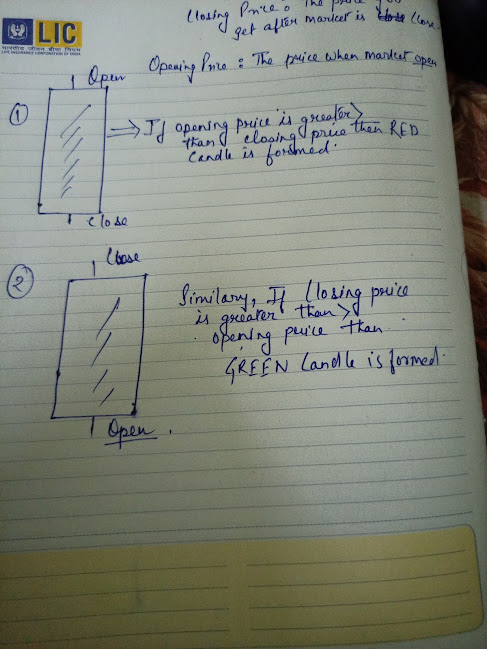 Closing Price : The price you
get after market is close.
LIC
भारतीय जीवन बीमा निगम
LIFE INSURANCE CORPORATION OF INDIA
Opening Price : The price when market open
Open
①
⇒ If opening price is greater >
than closing price then RED
Candle is formed.
Close
Close
②
Similary, If Closing price
is greater than >
opening price than
GREEN Candle is formed.
Open .